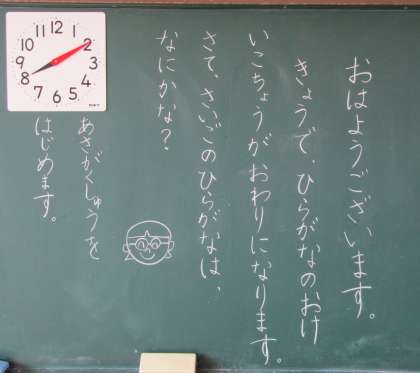 おはようございます。
きょうで、ひらがなのおけ
いこちょうがおわりになります。
さて、さいごのひらがなは、
なにかな？
あさがくしゅうを
はじめます。
12
1
2
3
4
5
6
7
8
9
10
11